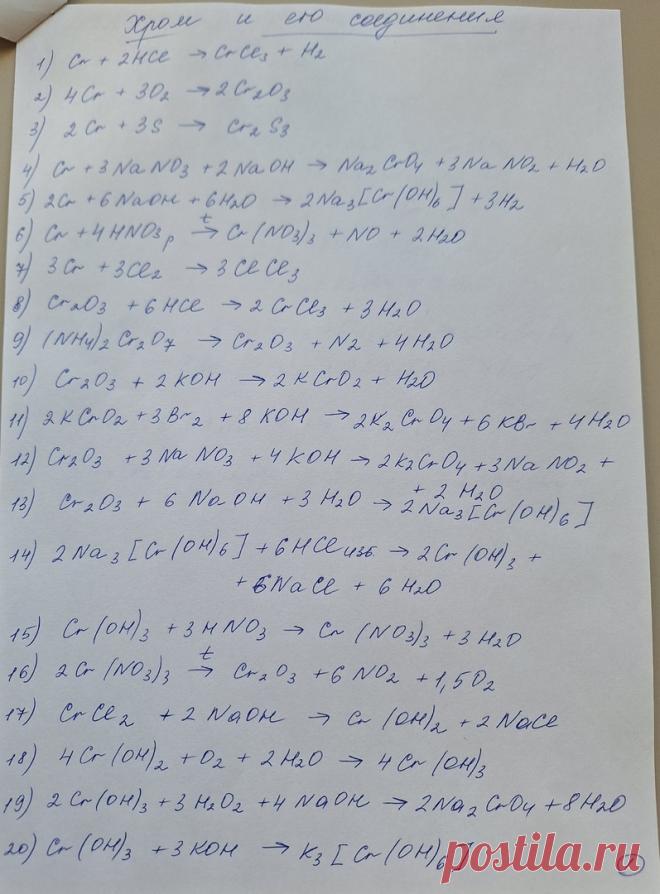 Хром и его соединения
1) Cr + 2HCl → CrCl₃ + H₂
2) 4Cr + 3O₂ → 2Cr₂O₃
3) 2Cr + 3S → Cr₂S₃
4) Cr + 3NaNO₃ + 2NaOH → Na₂CrO₄ + 3NaNO₂ + H₂O
5) 2Cr + 6NaOH + 6H₂O → 2Na₃[Cr(OH)₆] + 3H₂
t
6) Cr + 4HNO₃ р → Cr(NO₃)₃ + NO + 2H₂O
7) 3Cr + 3Cl₂ → 3ClCl₃
8) Cr₂O₃ + 6HCl → 2CrCl₃ + 3H₂O
9) (NH₄)₂Cr₂O₇ → Cr₂O₃ + N₂ + 4H₂O
10) Cr₂O₃ + 2KOH → 2KCrO₂ + H₂O
11) 2KCrO₂ + 3Br₂ + 8KOH → 2K₂CrO₄ + 6KBr + 4H₂O
12) Cr₂O₃ + 3NaNO₃ + 4KOH → 2K₂CrO₄ + 3NaNO₂ +
+ 2H₂O
13) Cr₂O₃ + 6NaOH + 3H₂O → 2Na₃[Cr(OH)₆]
14) 2Na₃[Cr(OH)₆] + 6HCl изб. → 2Cr(OH)₃ +
+ 6NaCl + 6H₂O
15) Cr(OH)₃ + 3HNO₃ → Cr(NO₃)₃ + 3H₂O
t
16) 2Cr(NO₃)₃ → Cr₂O₃ + 6NO₂ + 1,5O₂
17) CrCl₂ + 2NaOH → Cr(OH)₂ + 2NaCl
18) 4Cr(OH)₂ + O₂ + 2H₂O → 4Cr(OH)₃
19) 2Cr(OH)₃ + 3H₂O₂ + 4NaOH → 2Na₂CrO₄ + 8H₂O
20) Cr(OH)₃ + 3KOH → K₃[Cr(OH)₆]
postila.ru